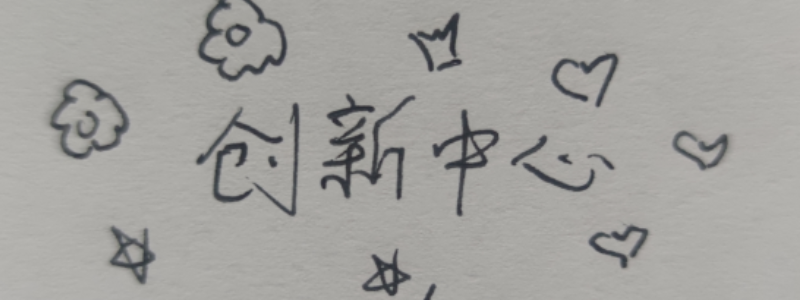 创新中心